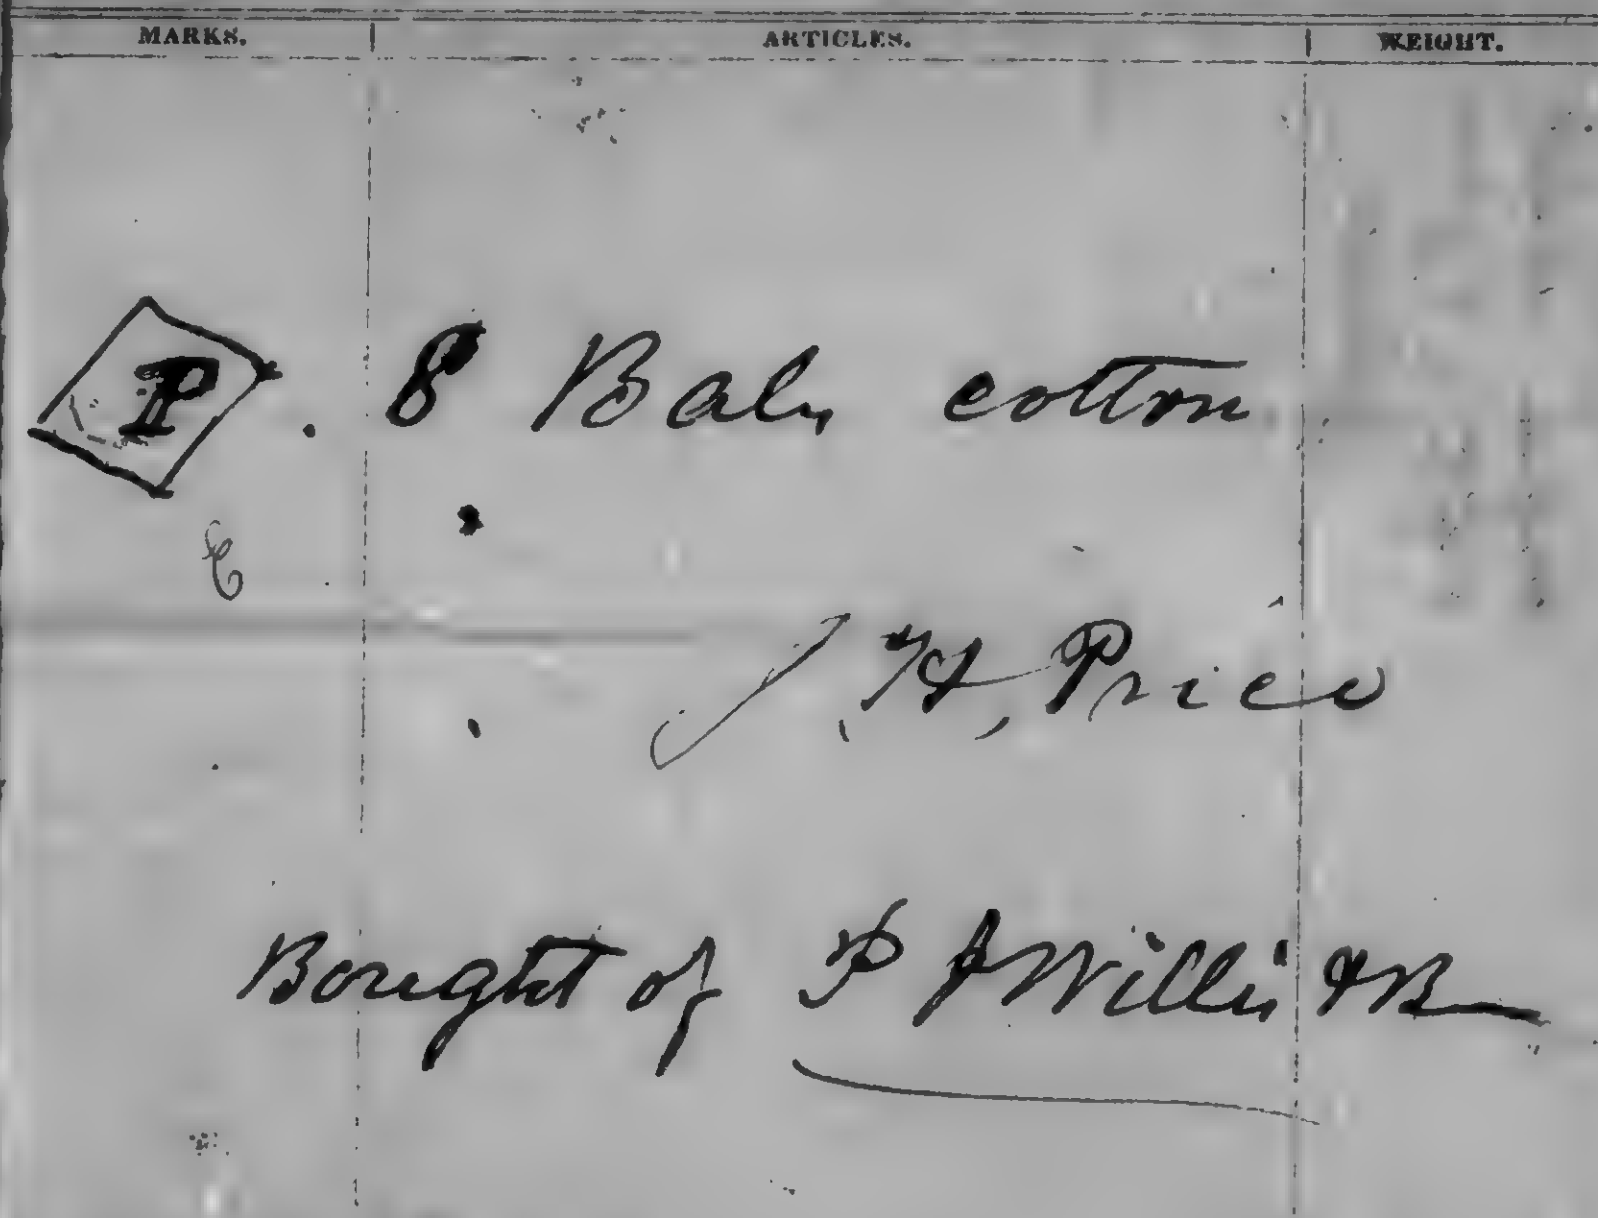 MARKS. ARTICLES. WEIGHT.
P 8 Bales cotton
J. H, Price
Bought of P J Willis & B